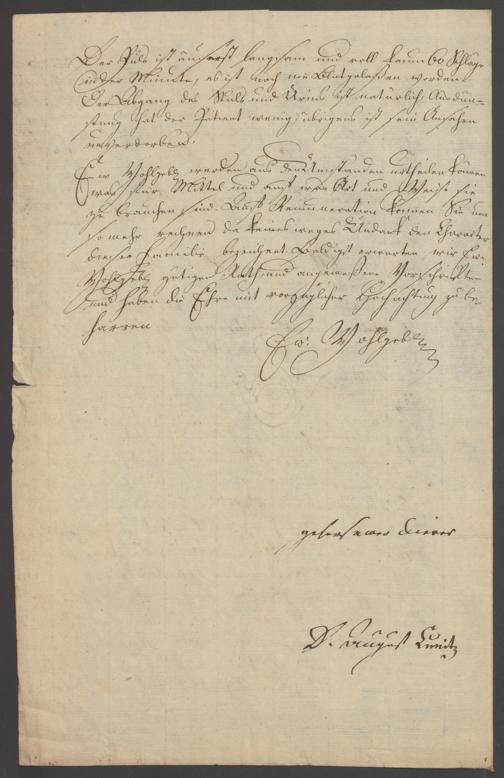 Der Puls ist äußerst langsam und voll kaum 60 Schläge
in der Minute, es ist noch nie Blutgelaßen worden.
Der Abgang des Stuls und Urins ist natürlich, Ausdün-
stung hat der Patient wenig, übrigens ist sein Ansehen
unverdorben.
Ew Wohlgeb. werden aus den Umständen urtheilen können
was für Mittel und auf was Art und Weise sie
zu brauchen sind. Auf Remuneration können Sie um
so mehr rechnen da keineswegs Undank den Character
dieser Familie bezeichnet. Baldigst erwarten wir Ew.
Wohlgeb. gütigen Rath und angemeßene Vorschriften
und haben die Ehre mit vorzüglicher Hochachtung zu be-
harren
Ew. Wohlgeb
gehorsamer Diener
D. August